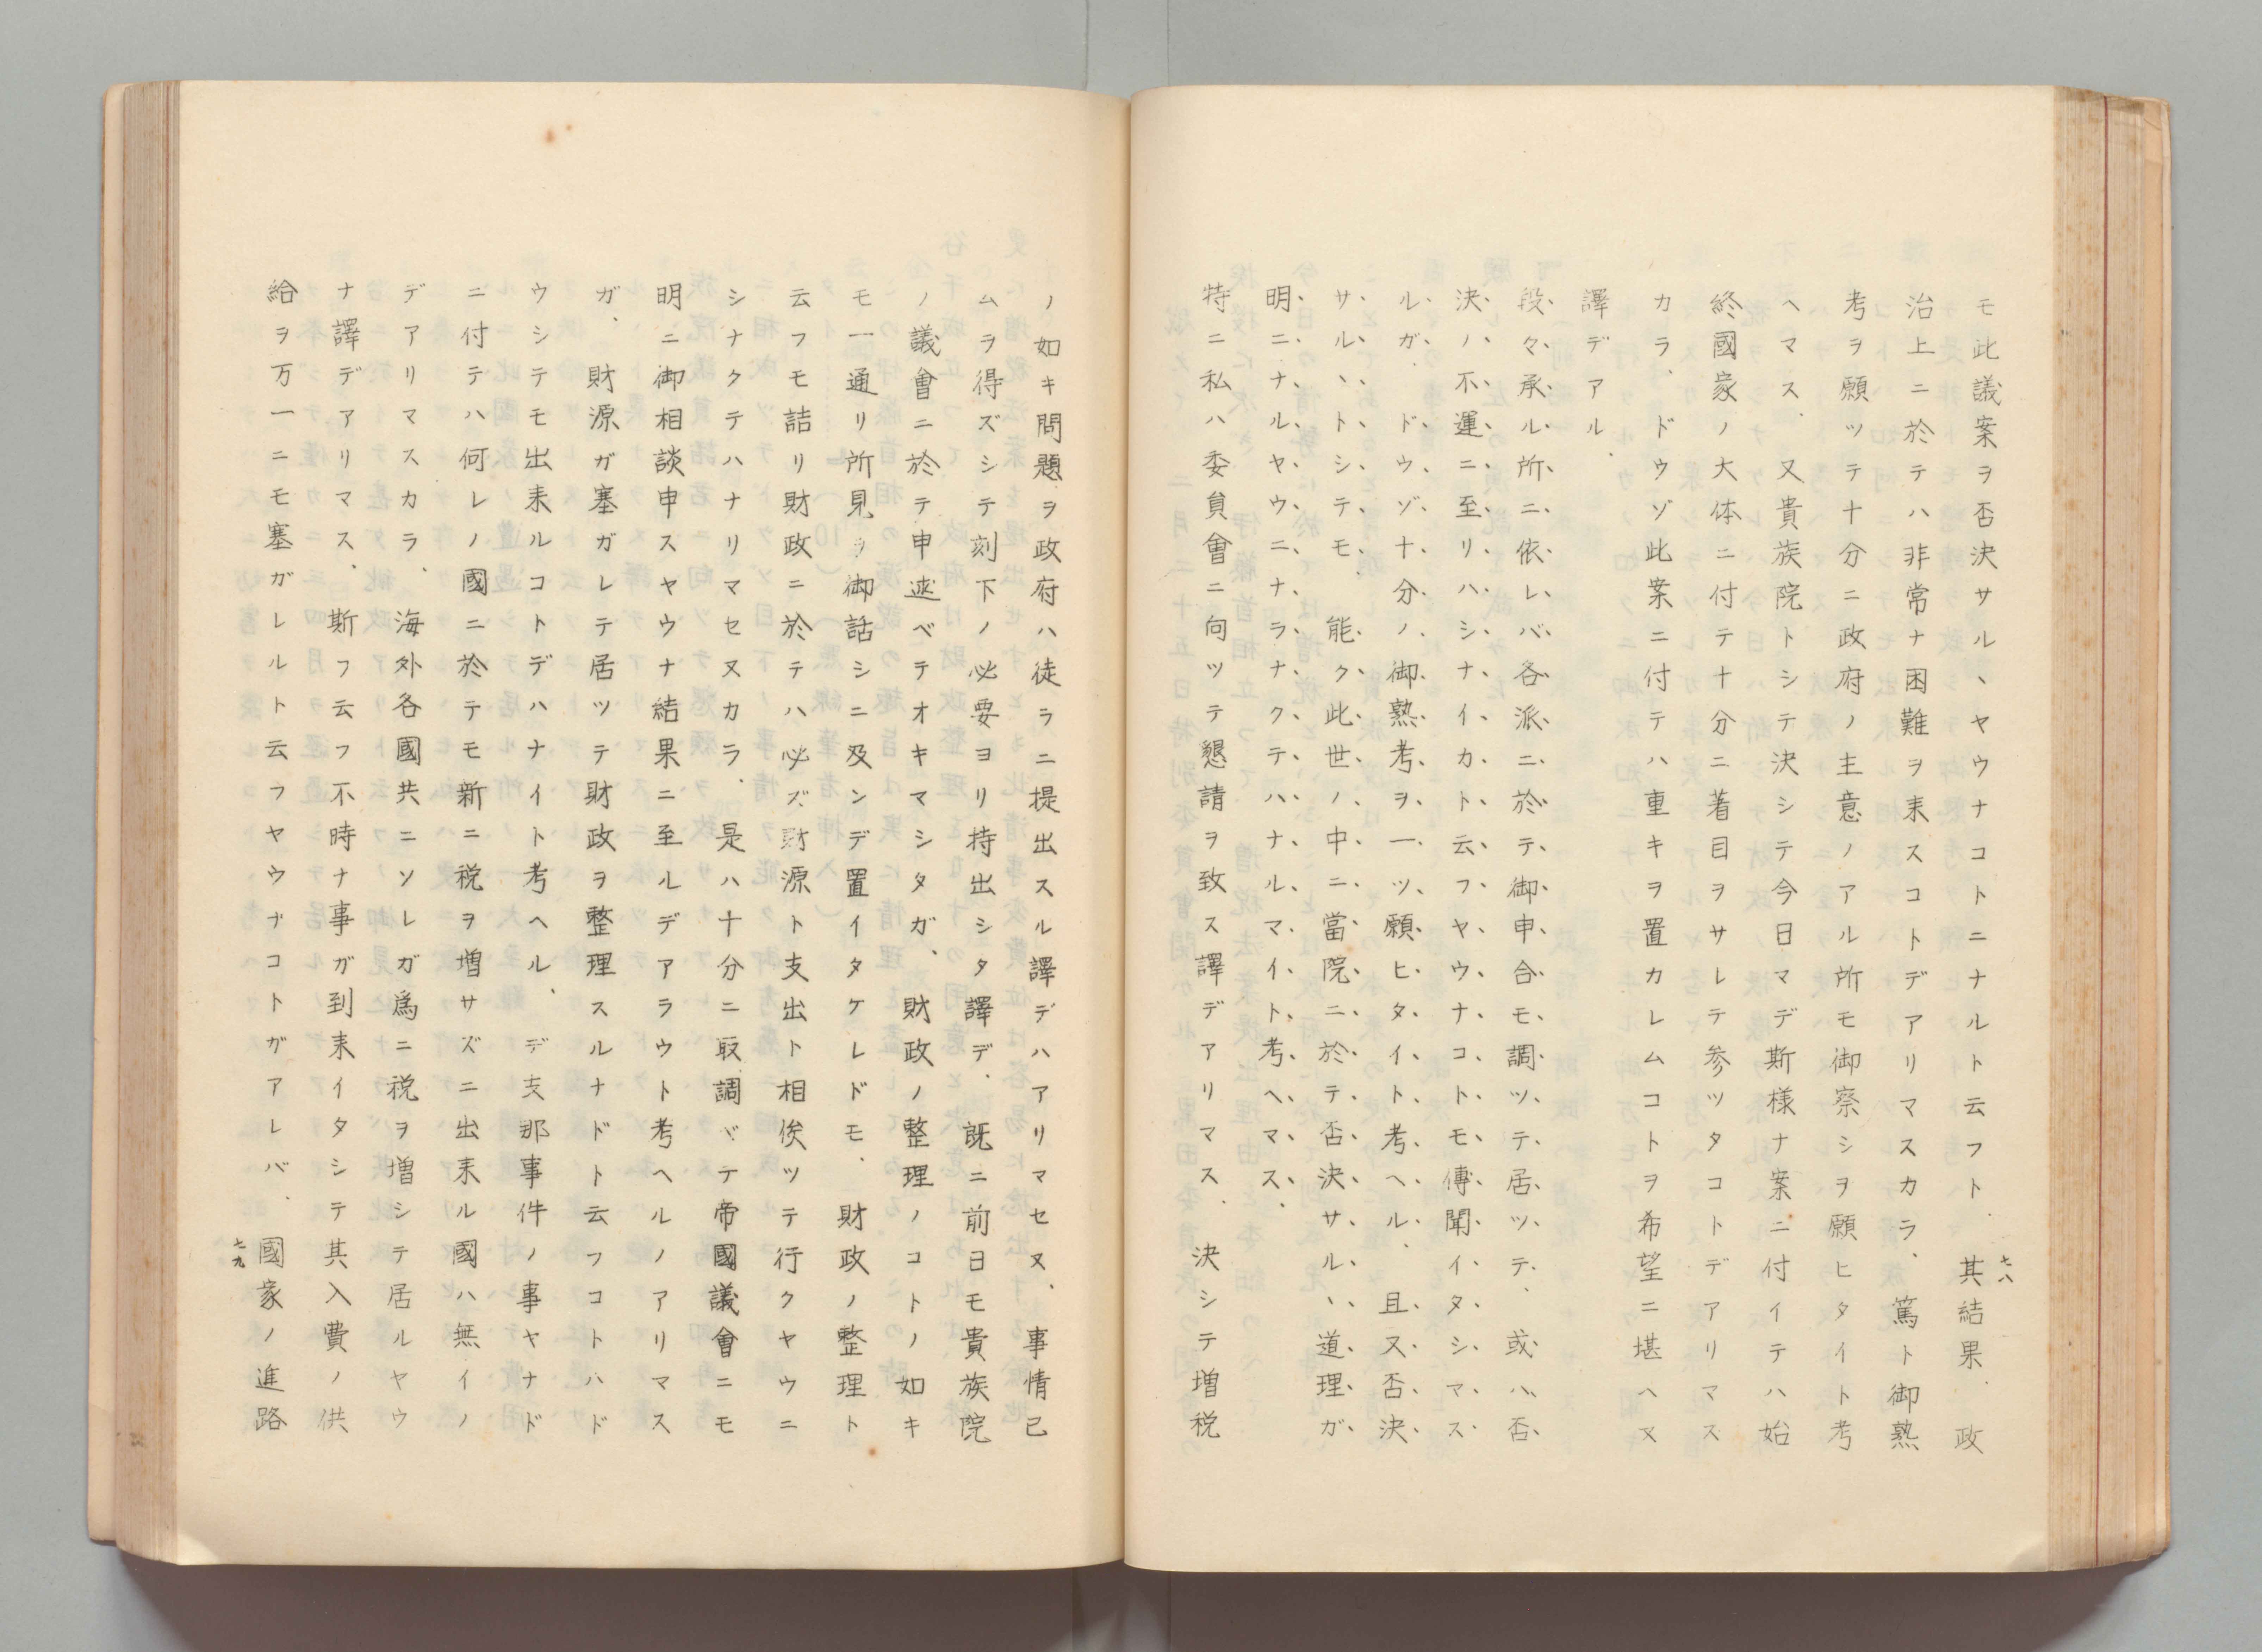 七八
モ此議案ヲ否決サルヽヤウナコトニナルト云フト、其結果、政
治上ニ於テハ非常ナ困難ヲ来スコトデアリマスカラ、篤ト御熟
考ヲ願ツテ十分ニ政府ノ主意ノアル所モ御察シヲ願ヒタイト考
ヘマス、又貴族院トシテ決シテ今日マデ斯様ナ案ニ付イテハ始
終國家ノ大体ニ付テ十分ニ着目ヲサレテ参ツタコトデアリマス
カラ、ドウゾ此案ニ付テハ重キヲ置カレムコトヲ希望ニ堪ヘヌ
譯デアル、
段々承ル所ニ依レバ各派ニ於テ御申合モ調ツテ居ツテ、或ハ否
決ノ不運ニ至リハシナイカト云フヤウナコトモ傳聞イタシマス
ルガ、ドウゾ十分ノ御熟考ヲ一ツ願ヒタイト考ヘル、且又否決
サルヽトシテモ、能ク此世ノ中ニ當院ニ於テ否決サルヽ道理ガ
明ニナルヤウニナラナクテハナルマイト考ヘマス、
特ニ私ハ委員會ニ向ツテ懇請ヲ致ス譯デアリマス、決シテ増税
ノ如キ問題ヲ政府ハ徒ラニ提出スル譯デハアリマセヌ、事情已
ムヲ得ズシテ刻下ノ必要ヨリ持出シタ譯デ、既ニ前日モ貴族院
ノ議會ニ於テ申述ベテオキマシタガ、財政ノ整理ノコトノ如キ
モ一通リ所見ヲ御話シニ及ンデ置イタケレドモ、財政ノ整理ト
云フモ詰リ財政ニ於テハ必ズ財源ト支出ト相俟ツテ行クヤウニ
シナクテハナリマセヌカラ、是ハ十分ニ取調ベテ帝國議會ニモ
明ニ御相談申スヤウナ結果ニ至ルデアラウト考ヘルノアリマス
ガ、財源ガ塞ガレテ居ツテ財政ヲ整理スルナドト云フコトハド
ウシテモ出来ルコトデハナイト考ヘル、デ支那事件ノ事ヤナド
ニ付テハ何レノ國ニ於テモ新ニ税ヲ増サズニ出来ル國ハ無イノ
デアリマスカラ、海外各國共ニソレガ為ニ税ヲ増シテ居ルヤウ
ナ譯デアリマス、斯フ云フ不時ナ事ガ到来イタシテ其入費ノ供
給ヲ万一ニモ塞ガレルト云フヤウナコトガアレバ、國家ノ進路
七九